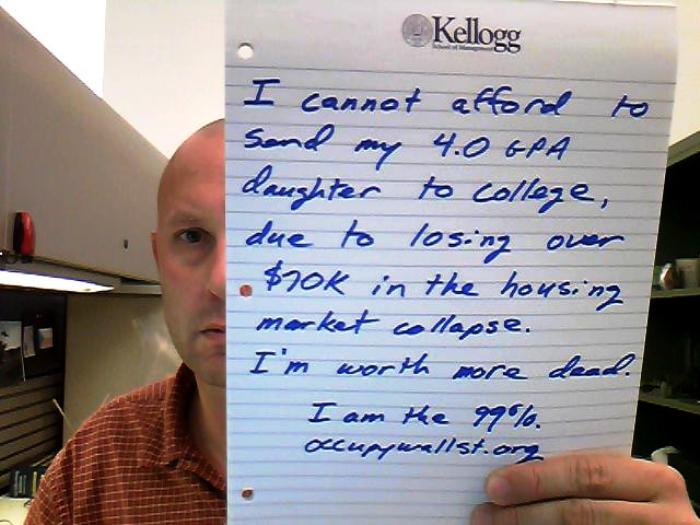 Kellogg
School of Management
I cannot afford to
send my 4.0 GPA
daughter to college,
due to losing over
$70K in the housing
market collapse.
I'm worth more dead.
I am the 99%.
occupywallst.org